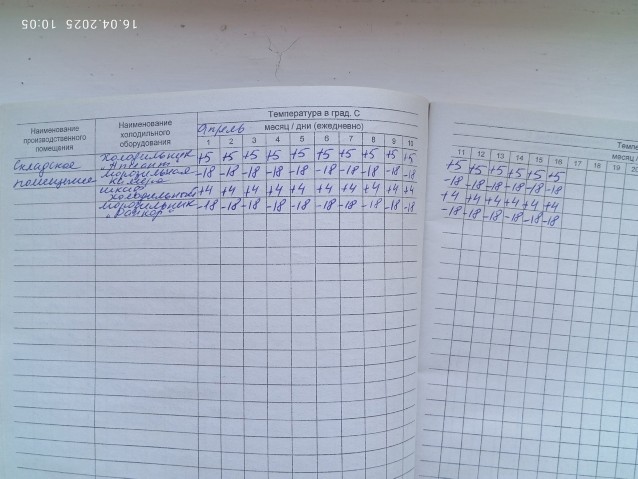 16.04.2025 10:05
Температура в град. С
Температ
Наименование производственного помещения
Наименование холодильного оборудования
Апрель месяц / дни (ежедневно)
месяц /
1 2 3 4 5 6 7 8 9 10 11 12 13 14 15 16 17 18 19 20
Складское помещение
Холодильник +5 +5 +5 +5 +5 +5 +5 +5 +5 +5 +5 +5 +5 +5 +5 +5
морозильная камера -18 -18 -18 -18 -18 -18 -18 -18 -18 -18 -18 -18 -18 -18 -18 -18
шкаф холодильный +4 +4 +4 +4 +4 +4 +4 +4 +4 +4 +4 +4 +4 +4 +4 +4
морозильник -18 -18 -18 -18 -18 -18 -18 -18 -18 -18 -18 -18 -18 -18 -18 -18